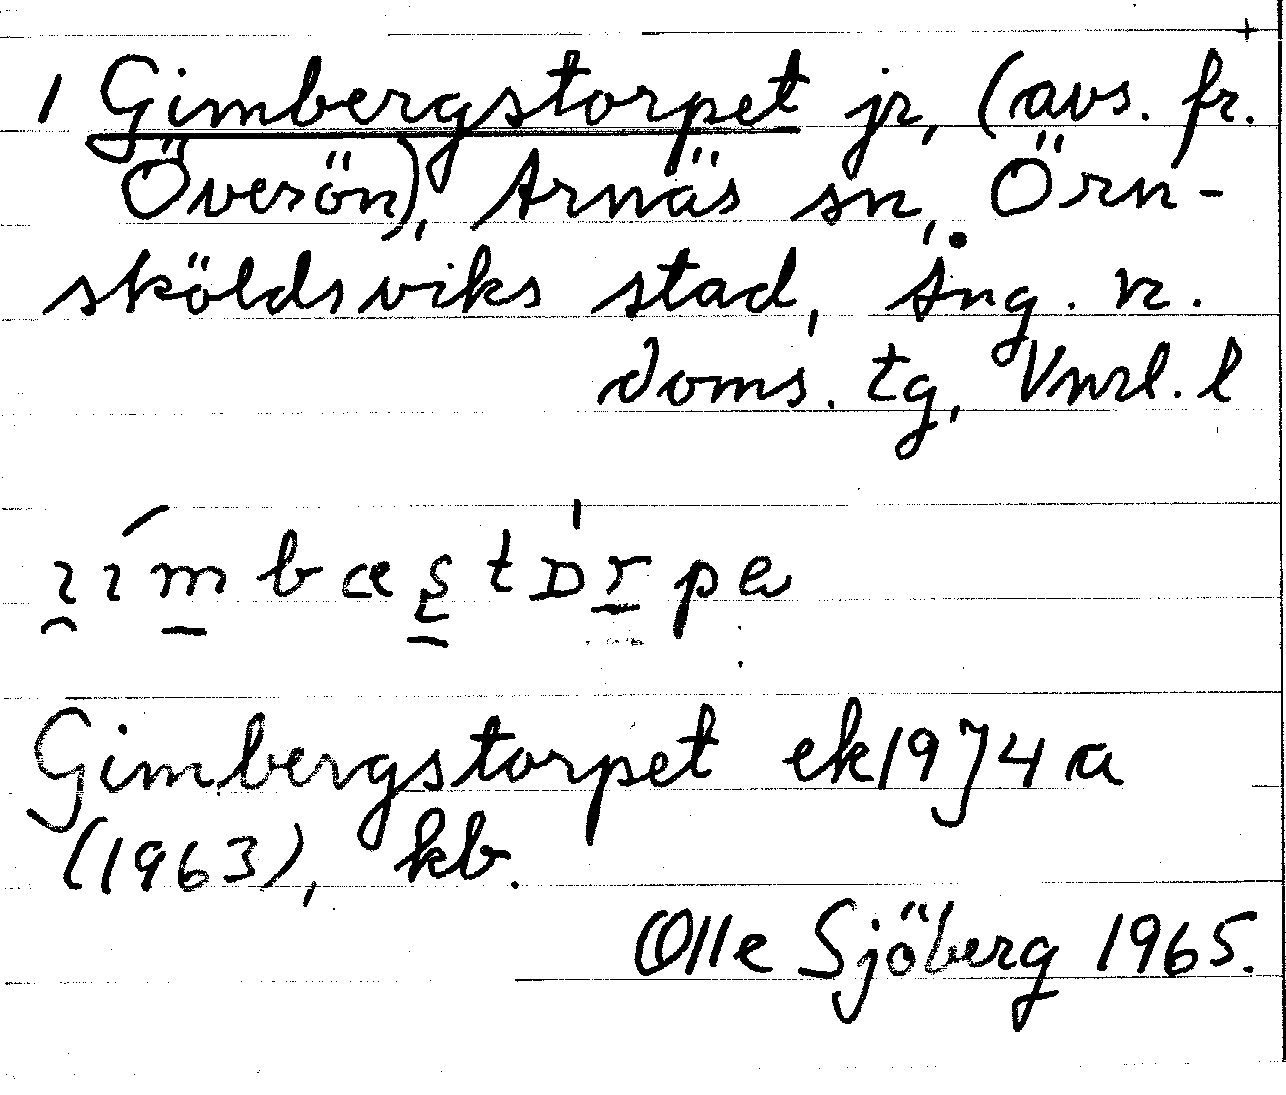 1 Gimbergstorpet jr, (avs. fr.
Överön), Arnäs sn, Örn-
sköldsviks stad, Ång. v.
doms. tg, Vnrl. l
Gimbergstorpet ek19J4a
(1963), kb.
Olle Sjöberg 1965.